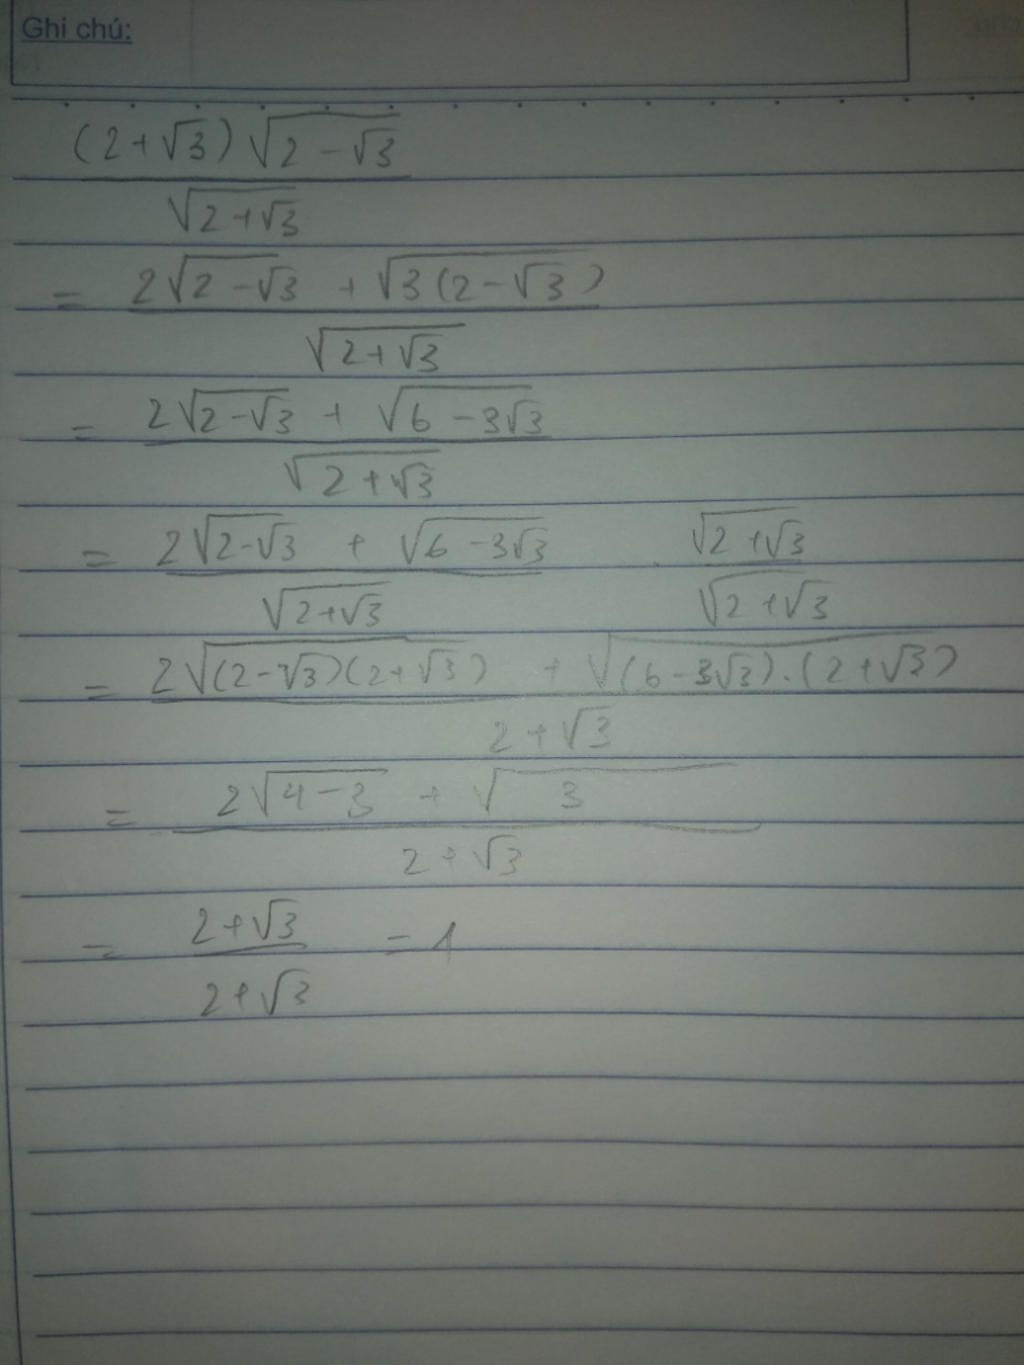 Ghi chú:
(2+√3)√(2-√3)
√(2+√3)
= 2√(2-√3) + √(3(2-√3))
√(2+√3)
= 2√(2-√3) + √(6-3√3)
√(2+√3)
= 2√(2-√3) + √(6-3√3) √(2+√3)
√(2+√3) √(2+√3)
= 2√((2-√3)(2+√3)) + √((6-3√3).(2+√3))
2+√3
= 2√(4-3) + √3
2+√3
= 2+√3 = 1
2+√3